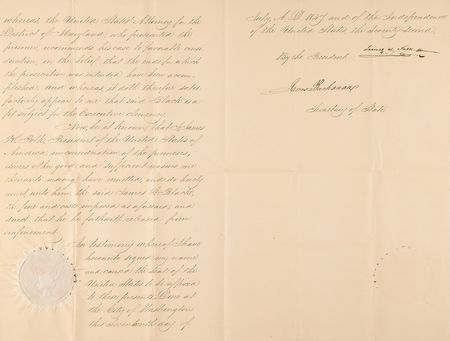 whereas, the United States' Attorney for the
District of Maryland, who prosecuted the
prisoner, recommends his case to favorable consi
deration, in the belief that the ends for which
the prosecution was intended have been accom
plished, and whereas it doth thus far satis
factorily appear to me that said Black is a
fit subject for the Executive clemency
Now, be it known, that I, James
K. Polk, President of the United States of
America, in consideration of the premises,
divers other good and sufficient reasons me
thereunto moving, have remitted, and do hereby
remit unto him, the said James Black,
the fine and costs imposed as aforesaid, and
direct that he be forthwith released from
confinement.
In testimony whereof I have
hereunto signed my name
and caused the Seal of the
United States to be affixed
to these presents. Done at
the City of Washington
this Seventeenth day of
July, A.D. 1847 and of the Independence
of the United States, the Seventy Second.
By the President James K. Polk
James Buchanan
Secretary of State